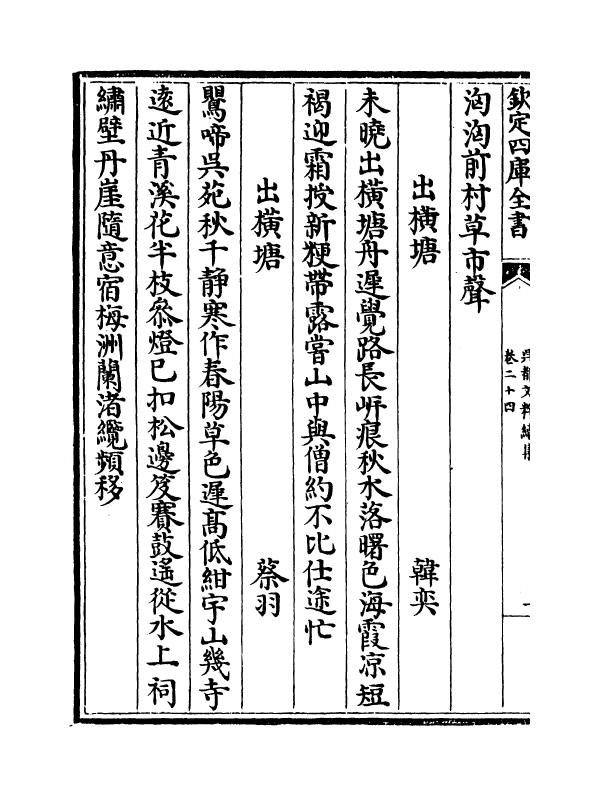 欽定四庫全書
卷二十四
洶洶前村草市聲
出橫塘 韓奕
未曉出橫塘舟遲覺路長岸痕秋水落曙色海霞凉短
褐迎霜授新粳帶露嘗山中與僧約不比仕途忙
出橫塘 蔡羽
鸎啼吳苑秋千静寒作春陽草色遲髙低紺宇山幾寺
逺近青溪花半枝祭燈已扣松邊笈賽鼓遙從水上祠
繡壁丹崖隨意宿梅洲蘭渚纜頻移